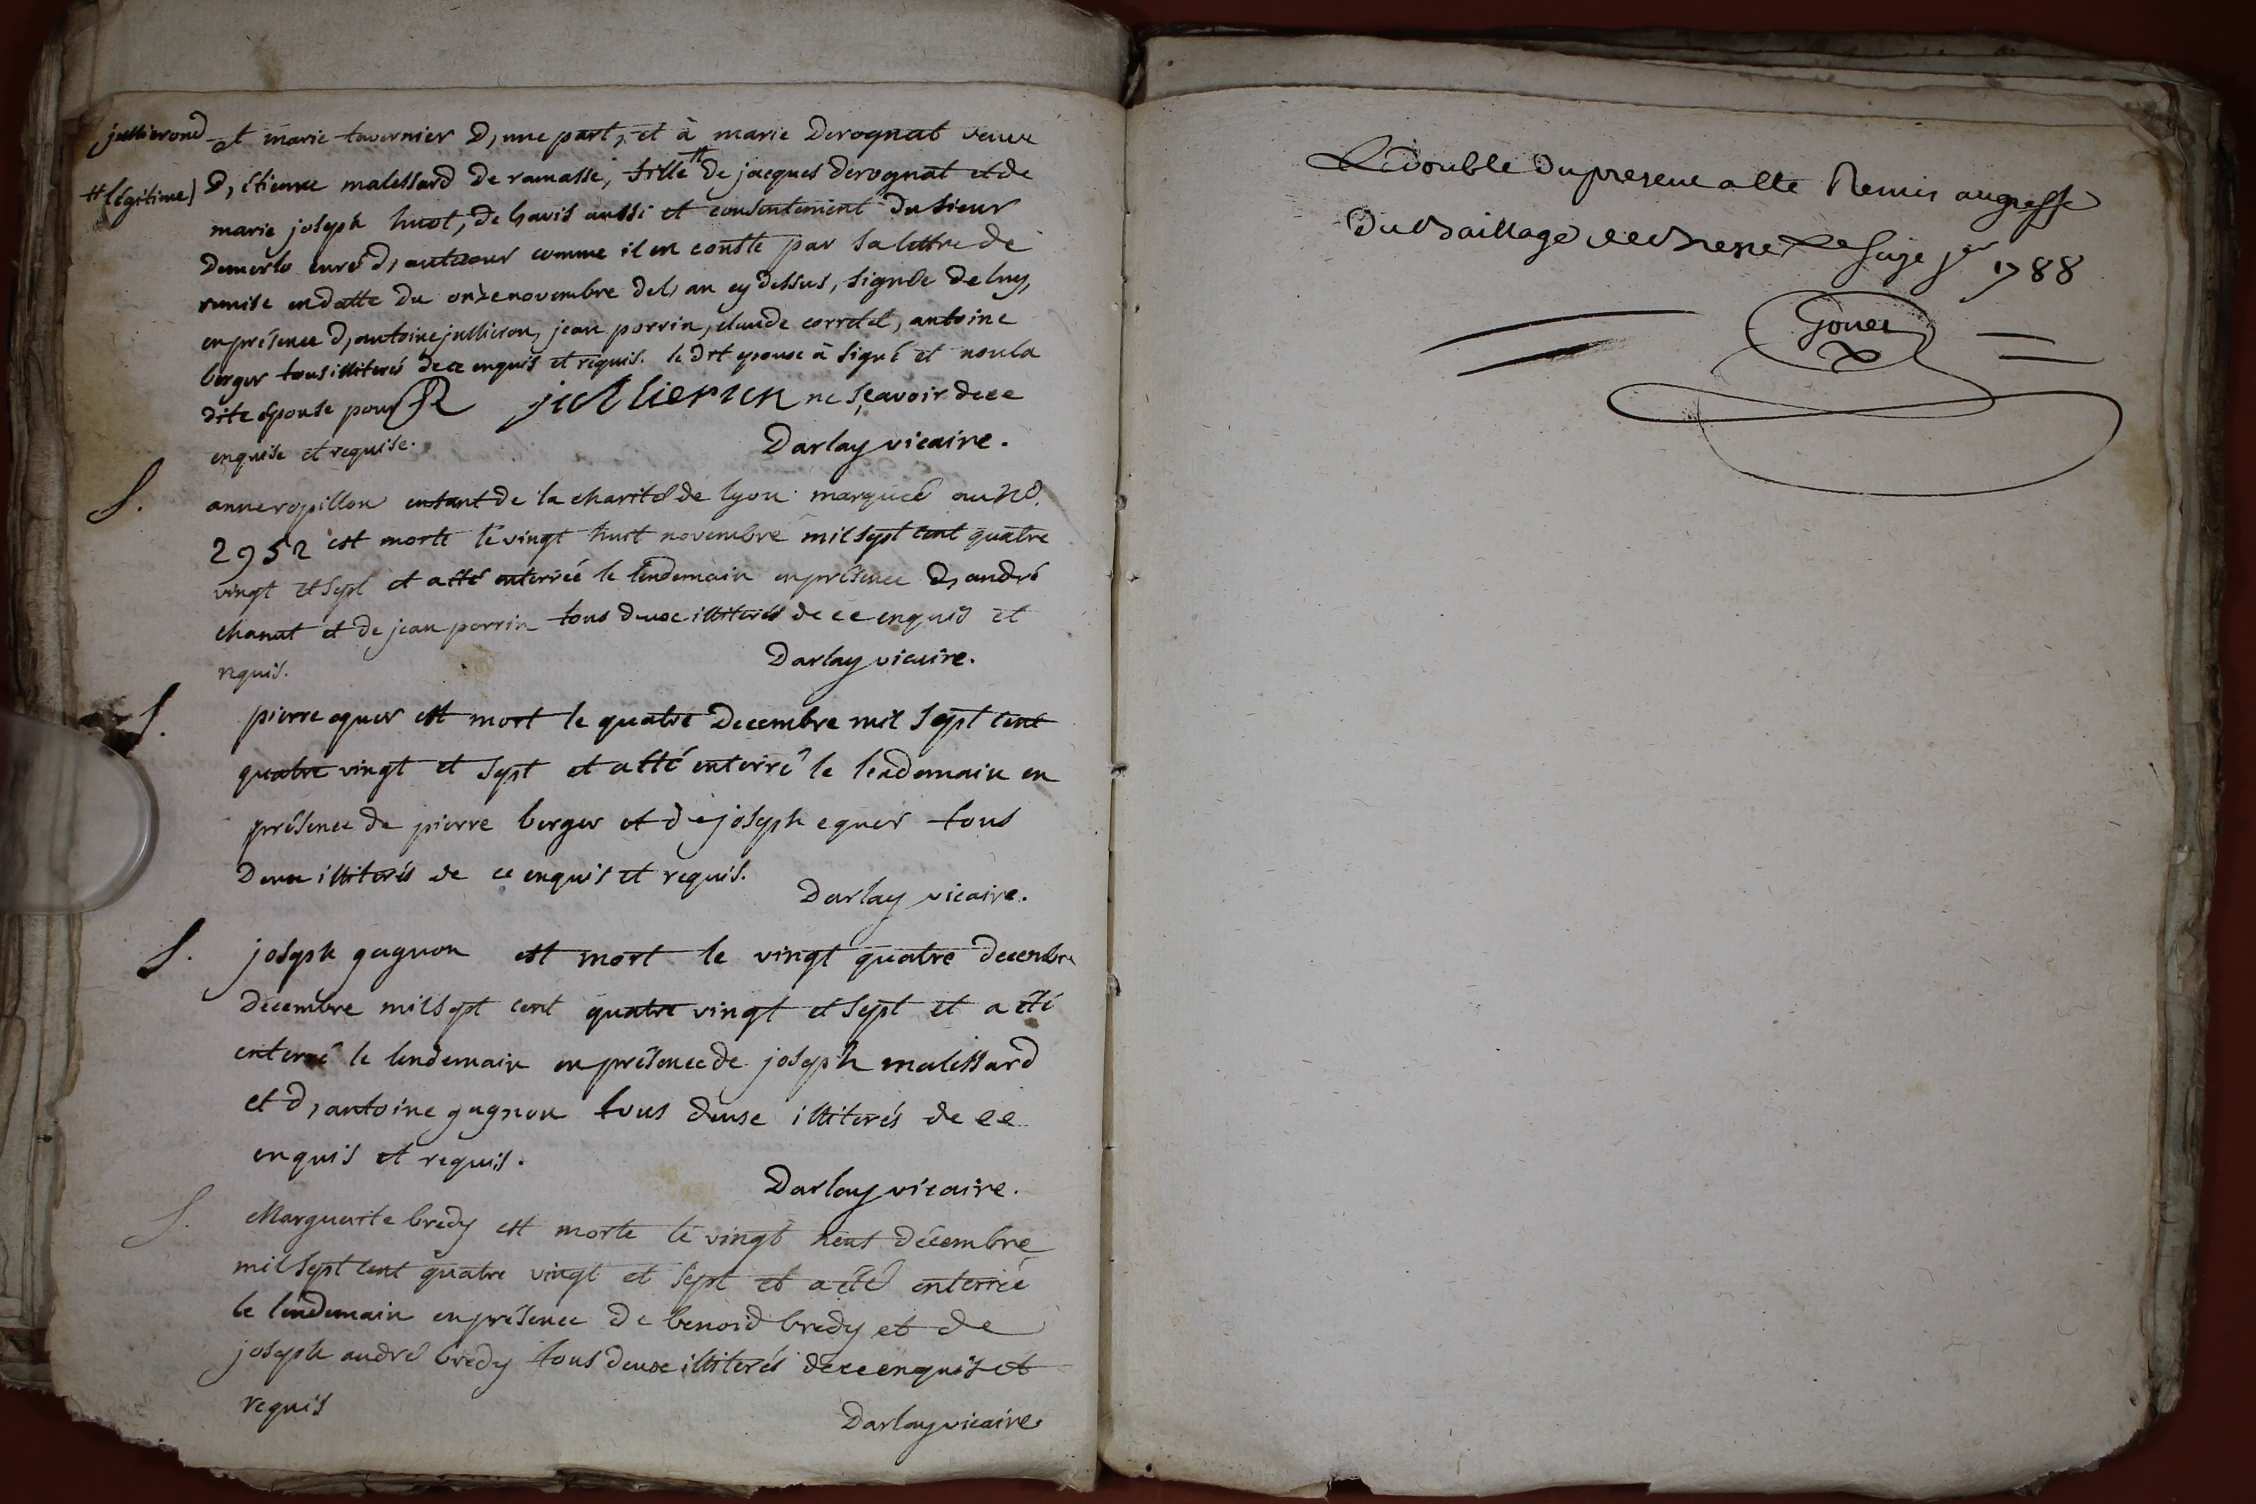 jullierond et marie tavernier d, une part, et à marie derognat veuve
# légitime) d, étienne malessard de ramasse, fille # de jacques derognat et de
marie joseph huot, de l'avis aussi et consentement du sieur
curé d, comme il en conste par sa lettre de
remise en datte du onze novembre del, an cy dessus, signée de luy,
en présence d, antoine jullieron, jean perrin, claude corretel, antoine
berger tous illiterés de ce enquis et requis. le dit epoux à signé et non la
dite épouse pour jullieron ne sçavoir de ce
enquise et requise.
Darlay vicaire.
S. anne ropillon enfant de la charité de lyon marquée au no.
2952 est morte le vingt huit novembre mil sept cent quatre
vingt et sept et a été enterrée le lendemain en présence d, andré
chanut et de jean perrin tous deux illiterés de ce enquis et
requis.
Darlay vicaire.
S. pierre equer est mort le quatre decembre mil sept cent
quatre vingt et sept et a été enterré le lendemain en
présence de pierre berger et de joseph equer tous
deux illiterés de ce enquis et requis.
Darlay vicaire.
S. joseph gagnon est mort le vingt quatre decembre
decembre mil sept cent quatre vingt et sept et a été
enterré le lendemain en présence de joseph malessard
et d, antoine gagnon tous deux illiterés de ce
enquis et requis.
Darlay vicaire.
S. Marguerite bredy est morte le vingt neuf décembre
mil sept cent quatre vingt et sept et a été enterrée
le lendemain en présence de benoid bredy et de
joseph andré bredy tous deux illiterés de ce enquis et
requis
Darlay vicaire.
Le double du present a été Remis au greffe
du Baillage de Bresse Le seize jer 1788